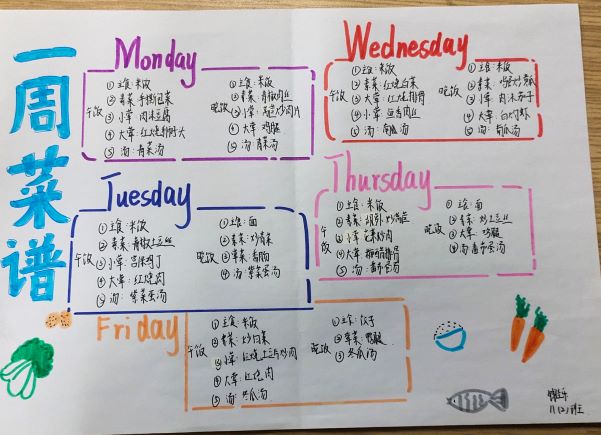 一周菜谱
Monday
午饭
①主食:米饭
②素菜:手撕包菜
③小荤:肉末豆腐
④大荤:红烧狮子头
⑤汤:青菜汤
晚饭
①主食:米饭
②素菜:青椒肉丝
③小荤:莴笋炒肉片
④大荤:鸡腿
⑤汤:青菜汤
Wednesday
午饭
①主食:米饭
②素菜:红烧白菜
③大荤:红烧排骨
④小荤:鱼香肉丝
⑤汤:南瓜汤
晚饭
①主食:米饭
②素菜:鸡蛋炒黄瓜
③小荤:肉末茄子
④大荤:白灼虾
⑤汤:南瓜汤
Tuesday
午饭
①主食:米饭
②素菜:青椒土豆丝
③小荤:宫保鸡丁
④大荤:红烧肉
⑤汤:紫菜蛋汤
晚饭
①主食:面
②素菜:炒青菜
③荤菜:香肠
④汤:紫菜蛋汤
Thursday
午饭
①主食:米饭
②素菜:胡萝卜炒莴笋
③小荤:芹菜炒肉
④大荤:糖醋排骨
⑤汤:番茄蛋汤
晚饭
①主食:面
②素菜:炒土豆丝
③大荤:鸡腿
④汤:番茄蛋汤
Friday
午饭
①主食:米饭
②素菜:炒白菜
③小荤:红烧土豆片炒肉
④大荤:红烧肉
⑤汤:冬瓜汤
晚饭
①主食:饺子
②荤菜:鸭腿
③冬瓜汤
11(2)班